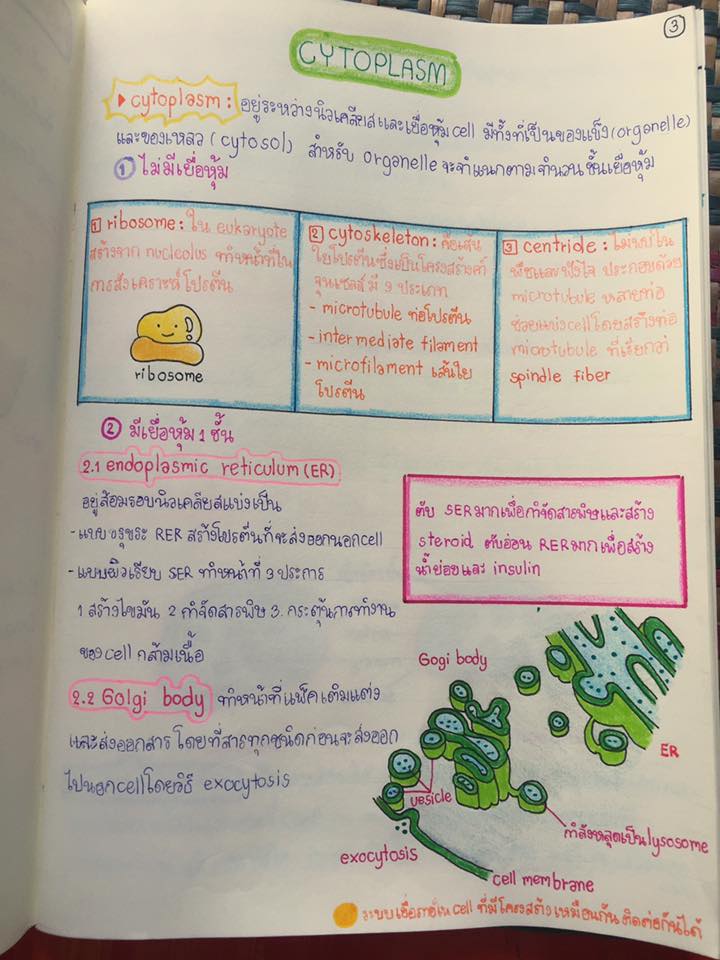 3
CYTOPLASM
▸ cytoplasm : อยู่ระหว่างนิวเคลียสและเยื่อหุ้ม cell มีทั้งที่เป็นของแข็ง (organelle)
และของเหลว (cytosol) สำหรับ organelle จะจำแนกตามจำนวนชั้นเยื่อหุ้ม
① ไม่มีเยื่อหุ้ม
1 ribosome : ใน eukaryote
สร้างจาก nucleolus ทำหน้าที่ใน
การสังเคราะห์โปรตีน
ribosome
2 cytoskeleton : คือเส้น
ใยโปรตีนซึ่งเป็นโครงสร้างค้ำ
จุนเซลล์ มี 3 ประเภท
- microtubule ท่อโปรตีน
- intermediate filament
- microfilament เส้นใย
โปรตีน
3 centride : ไม่พบใน
พืชและฟังไจ ประกอบด้วย
microtubule หลายท่อ
ช่วยแบ่ง cell โดยสร้างท่อ
microtubule ที่เรียกว่า
spindle fiber
② มีเยื่อหุ้ม 1 ชั้น
2.1 endoplasmic reticulum (ER)
อยู่ล้อมรอบนิวเคลียสแบ่งเป็น
- แบบขรุขระ RER สร้างโปรตีนที่จะส่งออกนอก cell
- แบบผิวเรียบ SER ทำหน้าที่ 3 ประการ
1 สร้างไขมัน 2 กำจัดสารพิษ 3. กระตุ้นการทำงาน
ของ cell กล้ามเนื้อ
ตับ SER มากเพื่อกำจัดสารพิษและสร้าง
steroid ตับอ่อน RER มากเพื่อสร้าง
น้ำย่อยและ insulin
2.2 Golgi body ทำหน้าที่แพ็คเติมแต่ง
และส่งออกสาร โดยที่สารทุกชนิดก่อนจะส่งออก
ไปนอก cell โดยวิธี exocytosis
Gogi body
ER
vesicle
กำลังหลุดเป็น lysosome
exocytosis
cell membrane
ระบบเยื่อภายใน cell ที่มีโครงสร้างเหมือนกัน ติดต่อกันได้